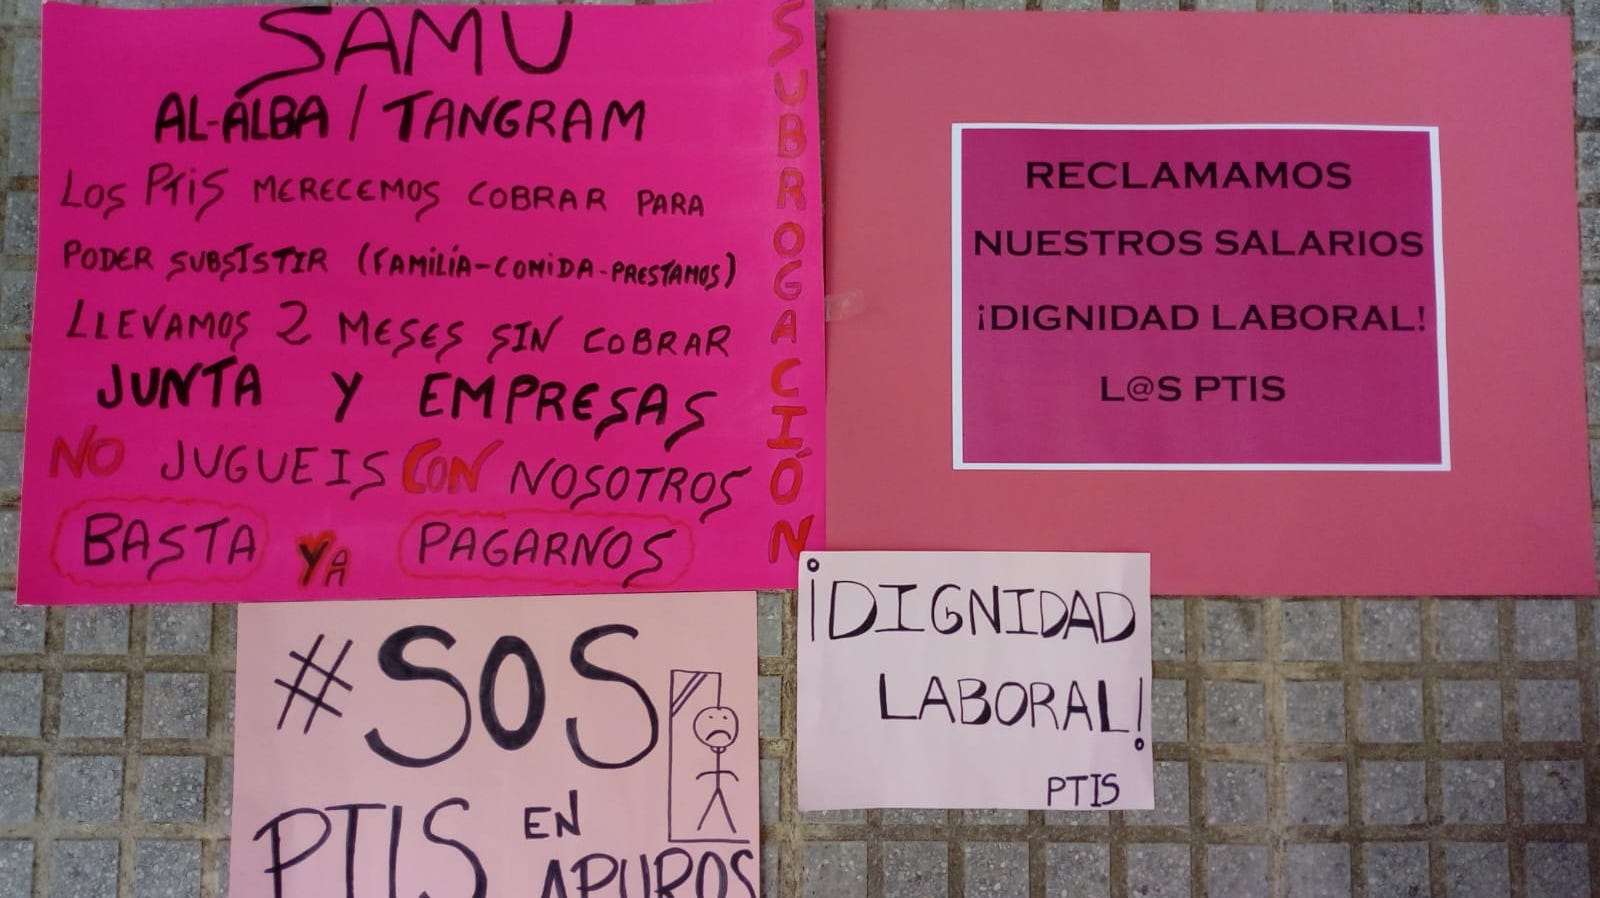 SAMU
AL-ÁLBA / TANGRAM
LOS PTIS MERECEMOS COBRAR PARA
PODER SUBSISTIR (FAMILÍA-COMIDA-PRESTAMOS)
LLEVAMOS 2 MESES SIN COBRAR
JUNTA Y EMPRESAS
NO JUGUEIS CON NOSOTROS
BASTA YA PAGARNOS
SUBROGACIÓN
RECLAMAMOS
NUESTROS SALARIOS
¡DIGNIDAD LABORAL!
L@S PTIS
#SOS
PTIS EN
APUROS
¡DIGNIDAD
LABORAL!
PTIS